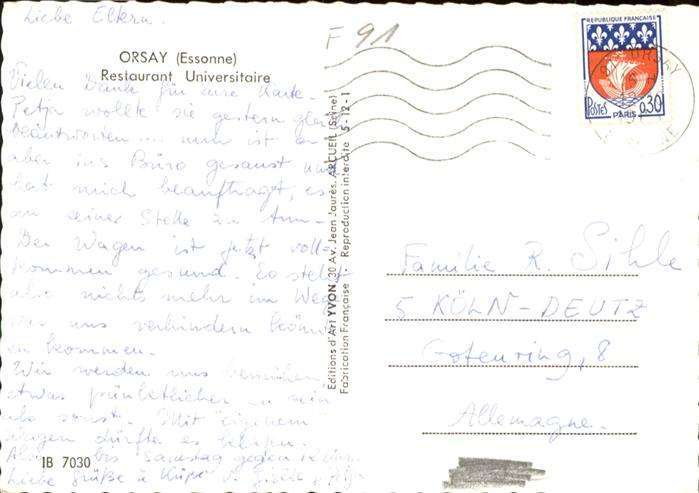 Liebe Eltern.
ORSAY (Essonne)
Restaurant Universitaire
Vielen Dank für eure Karte.
Petja wollte sie gestern gleich
beantworten... nun ist er
aber ins Büro gesaust und
hat mich beauftragt, es
an seiner Stelle zu tun.
Der Wagen ist jetzt voll-
kommen gesund. Es steht
also nichts mehr im Weg
was uns verhindern könnte
zu kommen.
Wir werden uns bemühen,
etwas pünktlicher zu sein
als sonst. Mit eigenem
Wagen dürfte es gelingen.
Also bis Samstag gegen
Liebe Grüße u. Küsse
IB 7030
F 91
Editions d'Art YVON, 30 Av. Jean Jaurès, ARCUEIL (Seine)
Fabrication Française - Reproduction interdite 5-12-1
REPUBLIQUE FRANÇAISE
POSTES
0,30
PARIS
ORSAY
Familie R. Sihle
5 KÖLN-DEUTZ
Gotenring, 8
Allemagne.